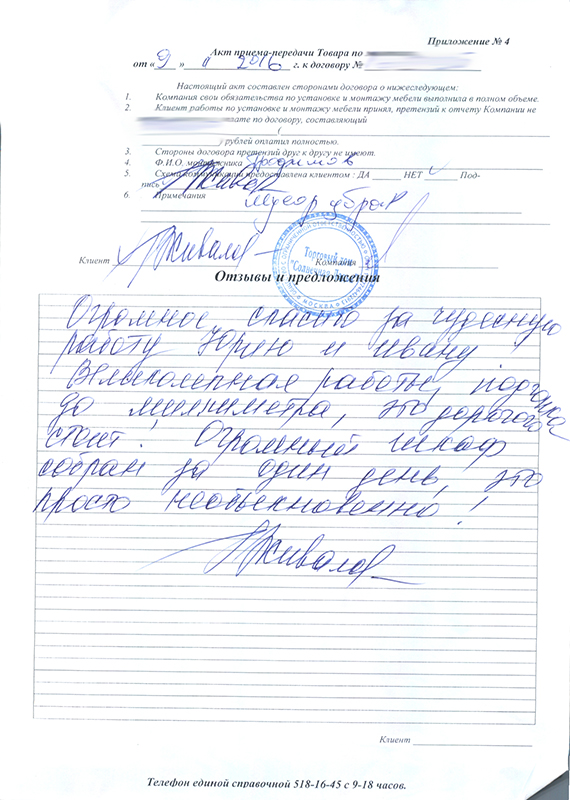 Приложение № 4
Акт приема-передачи Товара по
от « 9 » 2016 г. к договору №
Настоящий акт составлен сторонами договора о нижеследующем:
1. Компания свои обязательства по установке и монтажу мебели выполнила в полном объеме.
2. Клиент работы по установке и монтажу мебели принял, претензий к отчету Компании не
плате по договору, составляющий
(
) рублей оплатил полностью.
3. Стороны договора претензий друг к другу не имеют.
4. Ф.И.О. Трофимов
5. Схема коммуникаций предоставлена клиентом : ДА НЕТ Под-
пись
6. Примечания мусор убран
Торговый дом
МОСКВА
Клиент Компания
Отзывы и предложения
Огромное спасибо за чудесную
работу Юрию и Ивану!
Великолепная работы, подгонка
до миллиметра, это дорогого
стоит! Огромный шкаф
собран за один день, это
просто необыкновенно!
Клиент
Телефон единой справочной 518-16-45 с 9-18 часов.